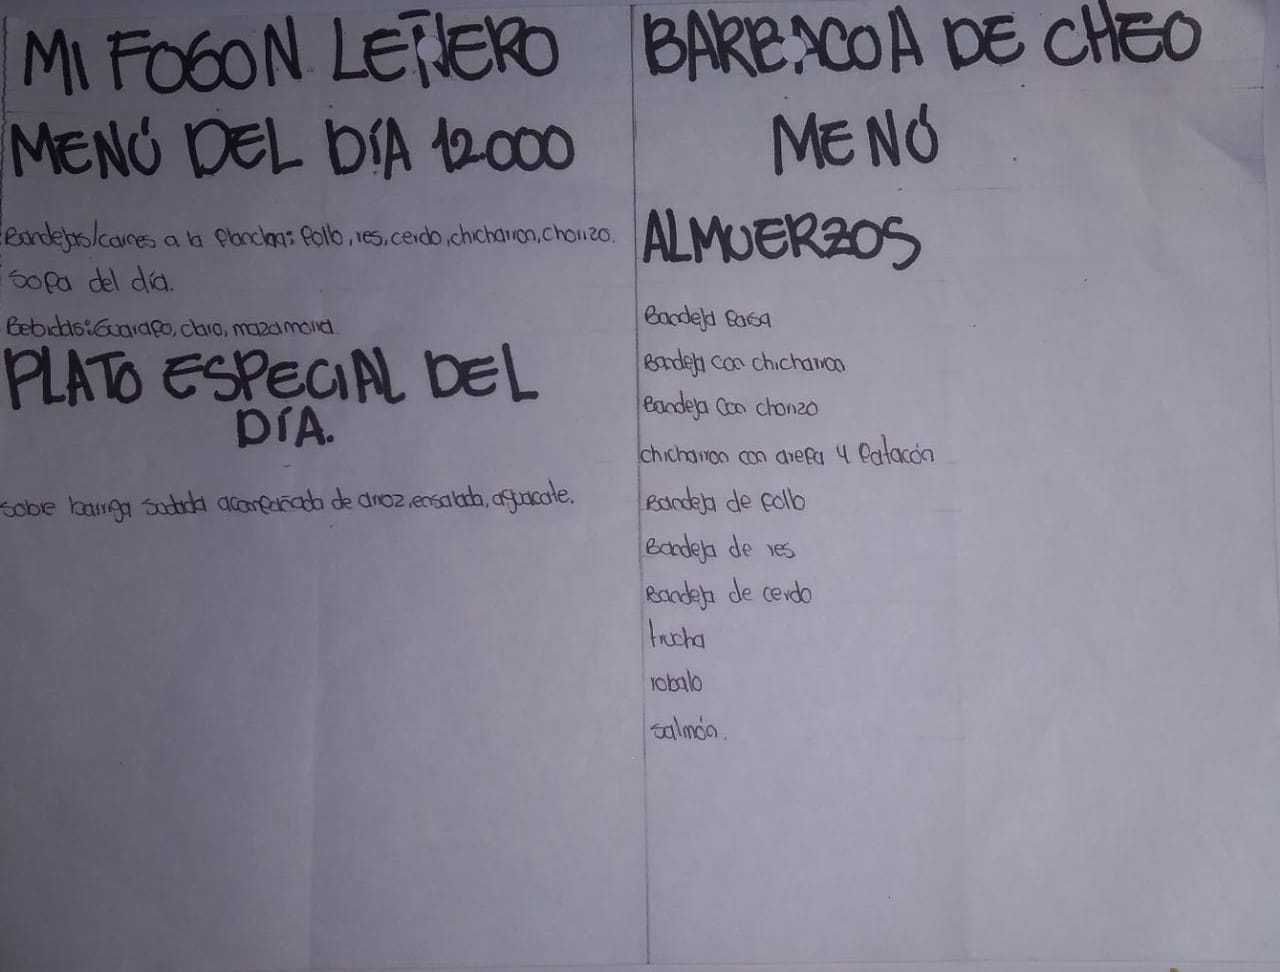 MI FOGON LEÑERO
MENÚ DEL DÍA 12.000
Bandejas/carnes a la plancha: Pollo, res, cerdo, chicharron, chorizo.
Sopa del día.
Bebidas: Guarapo, claro, mazamorra
PLATO ESPECIAL DEL
DÍA.
sobre barriga sudada acompañada de arroz, ensalada, aguacate.
BARBACOA DE CHEO
MENÚ
ALMUERZOS
Bandeja Paisa
Bandeja con chicharron
Bandeja con chorizo
chicharron con arepa y Patacón
Bandeja de pollo
Bandeja de res
Bandeja de cerdo
trucha
robalo
salmón.